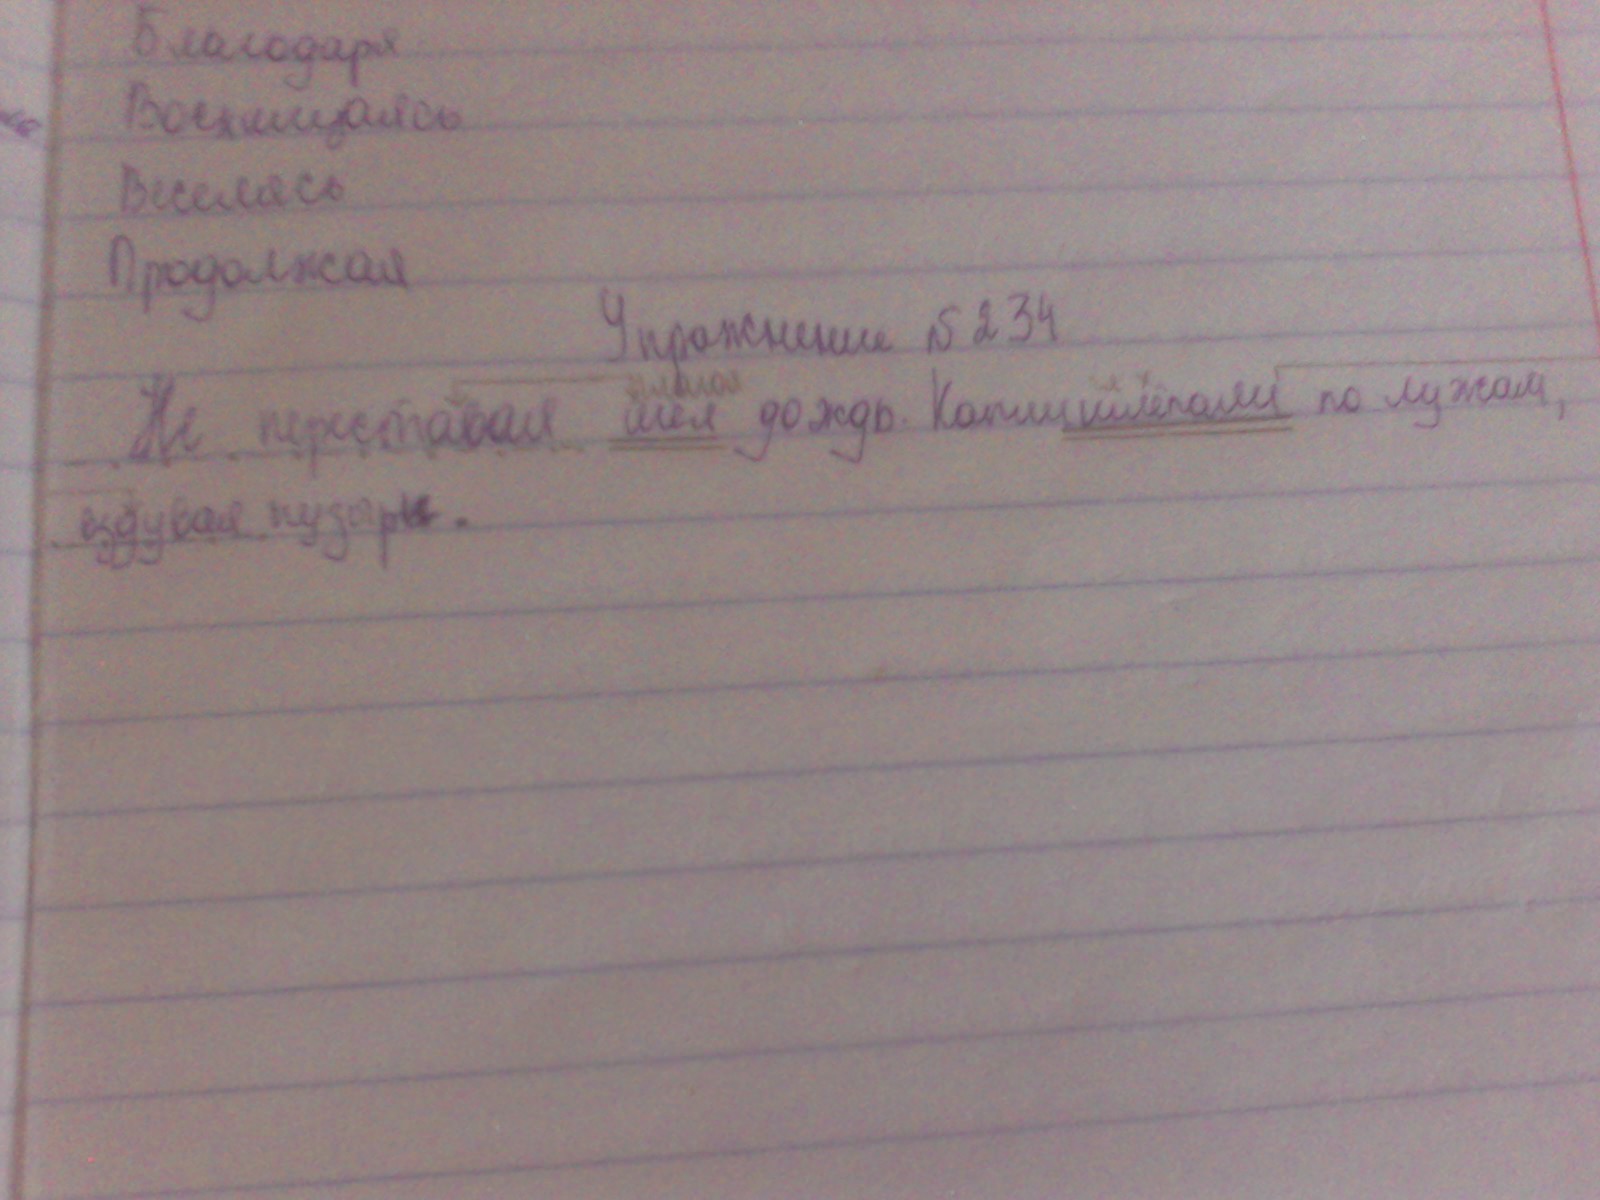 Благодаря
Восхищаясь
Веселясь
Продолжая
Упражнение №234
глагол
Не переставая шел дождь. Капли шлёпали по лужам,
вздувая пузыри.